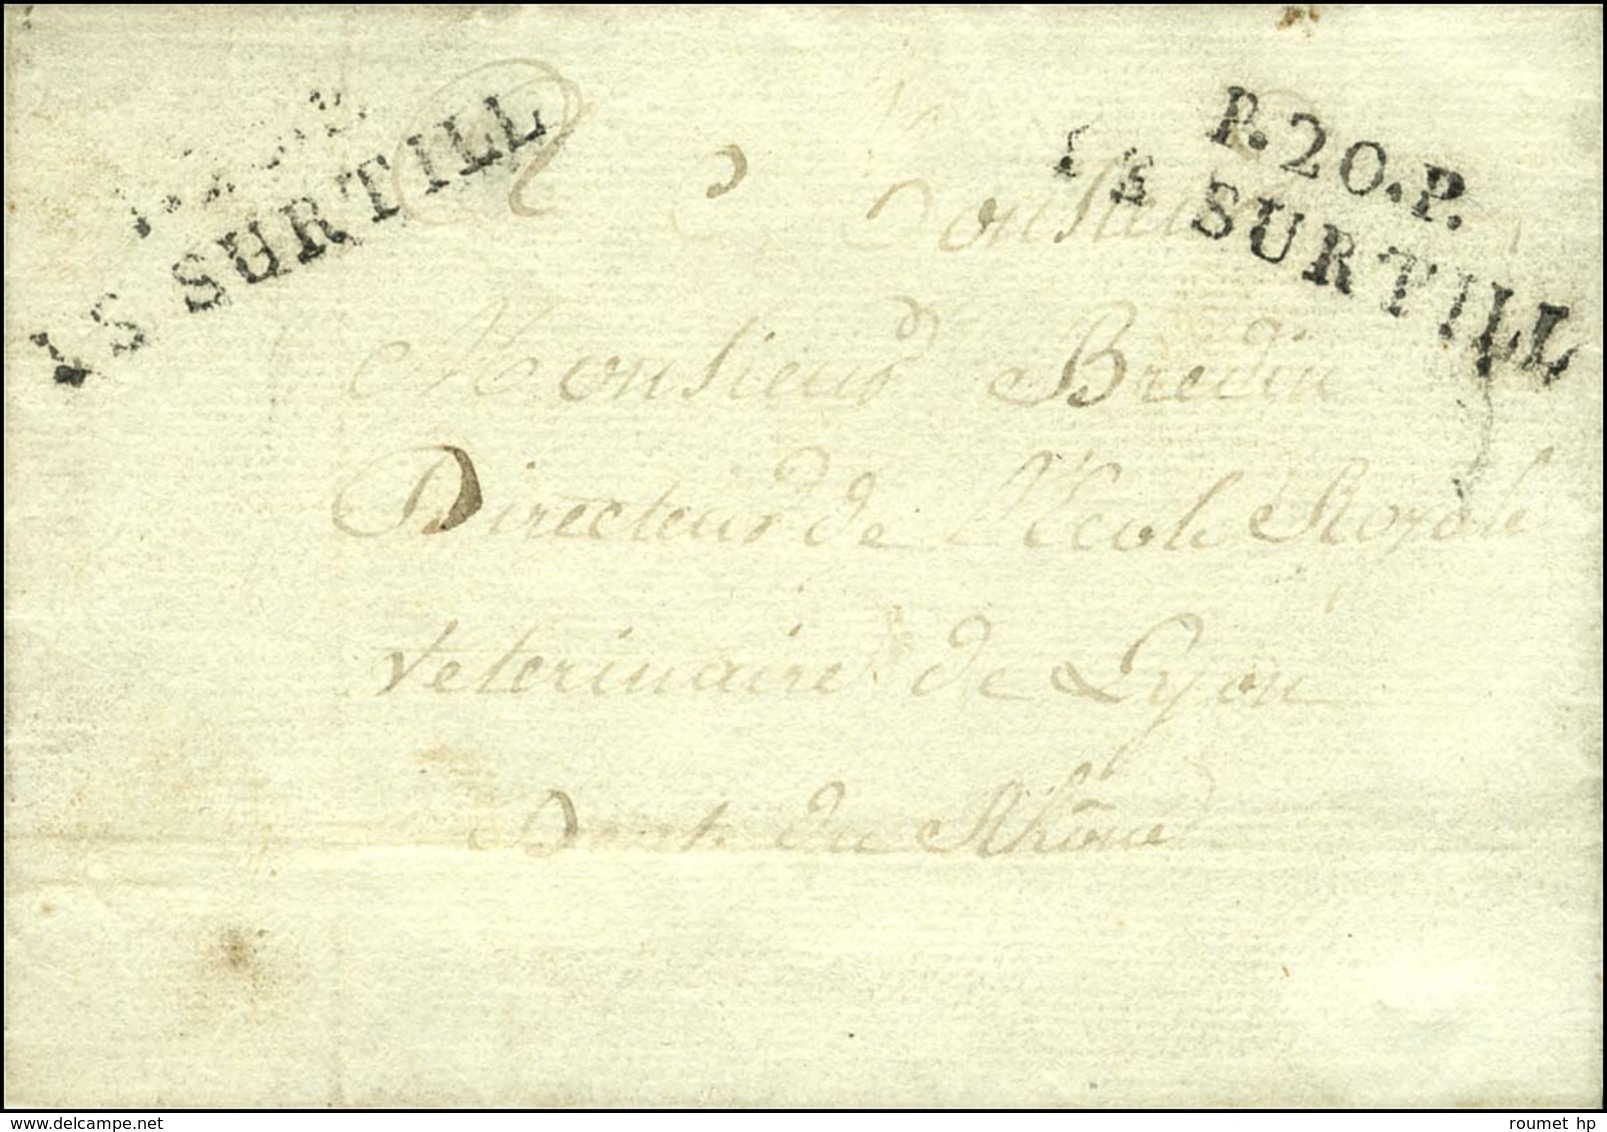 P.20.P.
IS SURTILL
P.20.P.
IS SURTILL
A Monsieur
Monsieur Bredin
Directeur de l'Ecole Royale
veterinaire de Lyon
Dept. du Rhône
www.delcampe.net
roumet hp